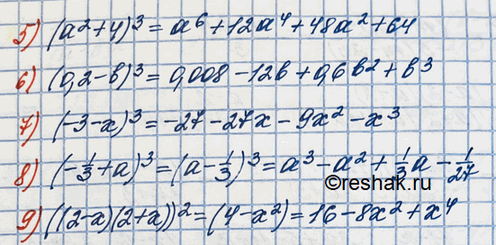 5) (a²+4)³ = a⁶+12a⁴+48a²+64
6) (0,2-b)³ = 0,008-12b+0,6b²+b³
7) (-3-x)³ = -27-27x-9x²-x³
8) (-1/3+a)³ = (a-1/3)³ = a³-a²+1/3a-1/27
©reshak.ru
9) ((2-x)(2+x))² = (4-x²) = 16-8x²+x⁴